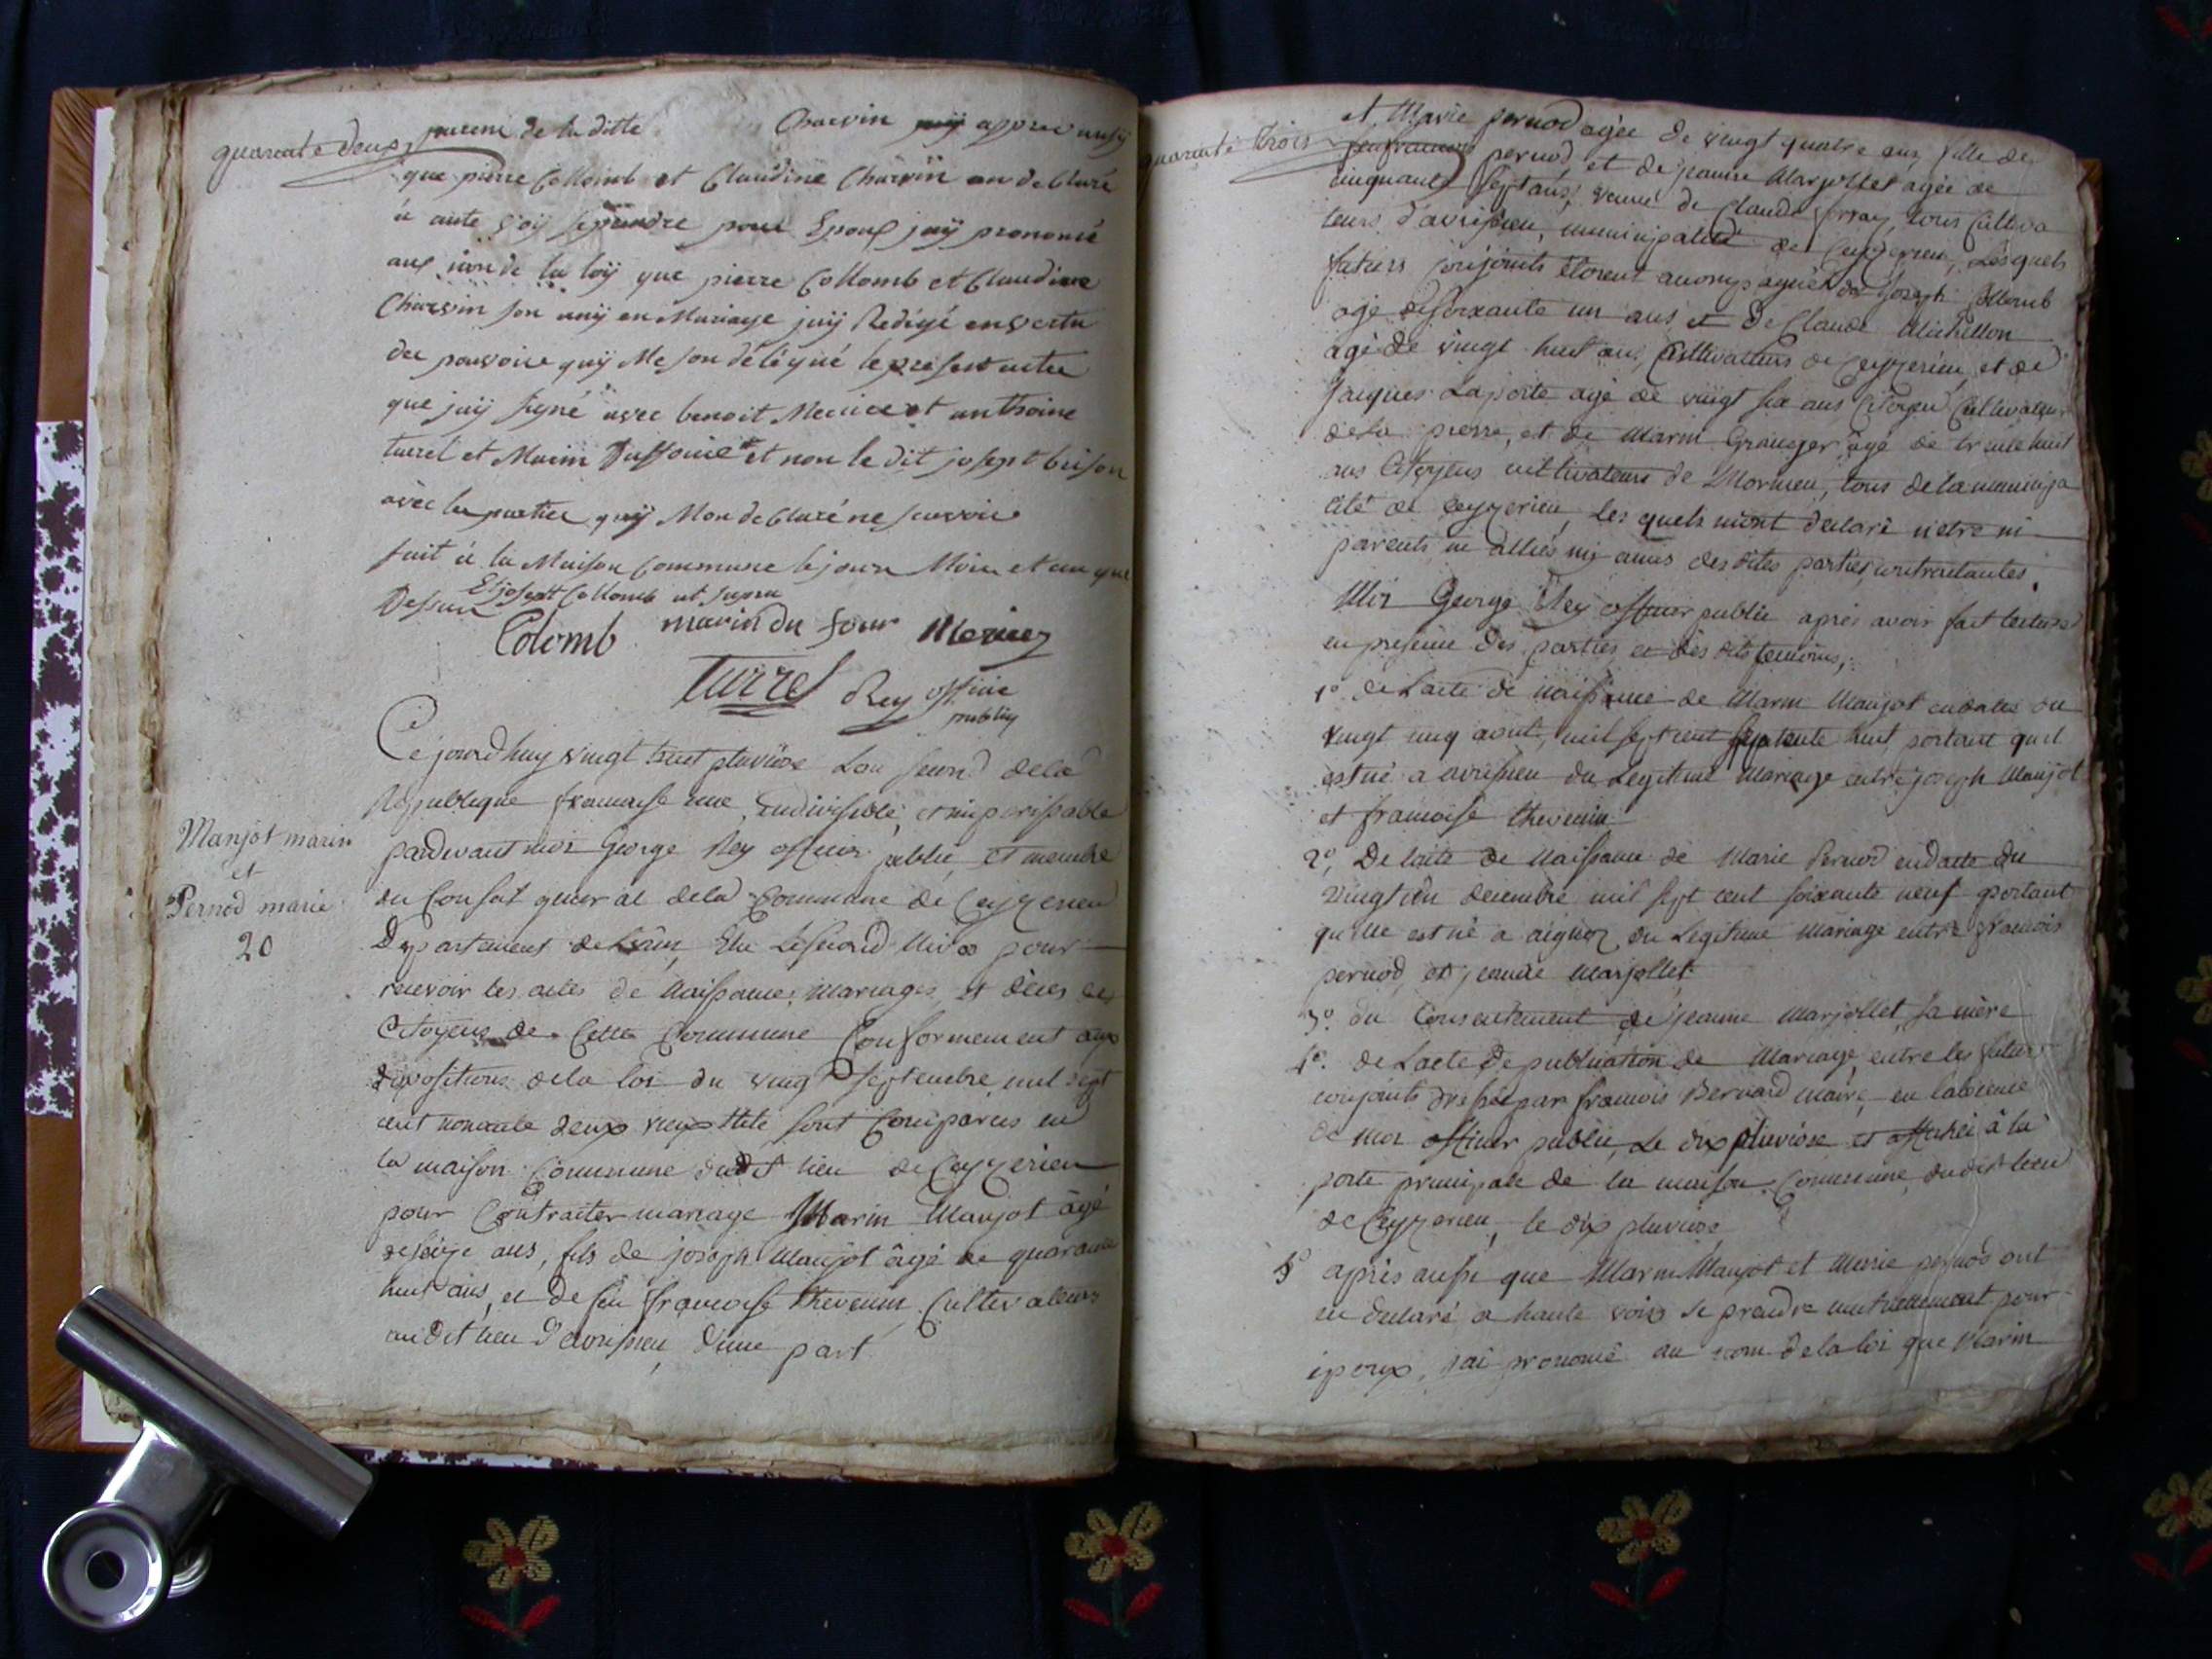 quarante deux
parent de la ditte Charvin apprès ausÿ
que pierre Collomb et Claudine Charvin on declaré
à aute voÿ se prendre pour Epoux jaÿ prononcé
aux nom de la loÿ que pierre Collomb et Claudine
Charvin son unÿ en Mariage jaÿ Redigé en vertu
des pouvoir quÿ Me son délégué le present acte
que jaÿ signé avec benoit Mercier et anthoine
turrel et Marin Duffour et non le dit joseph brison
avec les partie quÿ Mon declaré ne scavoir
fait à la Maison Commune le jour Mois et an que
Dessus Et joseph Collomb ut supra
Colomb marin du four Mercier
Turrel Rey officié
publiq
Manjot marin
et
Pernod marie
20
Cejourdhuy vingt huit pluviose L'an second de la
Republique francaise une, Indivisible, et imperissable
pardevant moi George Rey officier public, et membre
du Conseil general de la Commune de Ceyzerieu
Departement de L'ain, Elu Le second Nivos pour
recevoir les actes de Naissances, Mariages, et décès des
Citoyens de Cette Commune Conformement aux
dispositions de la loi du vingt septembre mil sept
cent nonante deux sont Comparus en
la maison Commune dudit lieu de Ceyzerieu
pour Contracter mariage Marin Manjot âgé
de seize ans, fils de joseph Manjot âgé de quarante
huit ans, et de feu francoise Thevenin Cultivateurs
audit lieu D'avrissieu, d'une part
quarante trois
et Marie pernod agée de vingt quatre ans, fille de
feu francois pernod, et de jeanne Marjollet agée de
cinquante sept ans, veuve de Claude tous Cultiva
teurs d'avrissieu, municipalité de Ceyzerieu, Lesquels
futurs conjoints étoient accompagnés de Joseph Collomb
agé de soixante un ans et de Claude Michellon
agé de vingt huit ans, Cultivateurs de Ceyzerieu, et de
Jacques Laporte agé de vingt six ans Citoyen Cultivateur
de la pierre, et de Marin Granger âgé de trente huit
ans Citoyens cultivateurs de Mornieu, tous de la municipa
lité de Ceyzerieu, Les quels m'ont declaré n'etre ni
parents ni alliés ni amis des dites parties contractantes.
Moi George Rey officier public après avoir fait lecture
en presence des parties et des dits temoins,
1º de L'acte de naissance de Marin Manjot en date du
vingt cinq aout, mil sept cent septente huit, portant qu'il
est né a avrissieu du Legitime Mariage entre joseph Manjot
et francoise thevenin
2º, De l'acte de Naissance de Marie Pernod en date du
vingt un decembre mil sept cent soixante neuf portant
qu'elle est né a aignoz du Legitime mariage entre francois
pernod, et jeanne Marjollet
3º. du Consentement de jeanne marjollet, sa mère
4º. de L'acte de publication de Mariage entre les futurs
conjoints dressé par francois Bernard maire, en l'absence
de moi officier public, Le dix pluviose et affiché à la
porte principale de la maison Commune dudit lieu
de Ceyzerieu, le dix pluviose
5º après aussi que Marin Manjot et Marie pernod ont
eu declaré a haute voix se prendre mutuellement pour
époux, j'ai prononcé au nom de la loi que Marin